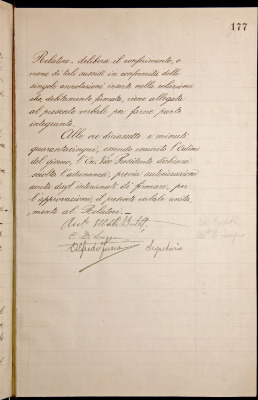 177
Relatore - delibera il conferimento, o
meno di tali sussidi in conformità delle
singole annotazioni inserte nella relazione
che, debitamente firmata, viene allegata
al presente verbale per farne parte
integrante.
Alle ore diciassette e minuti
quarantacinque, essendo esaurito l'Ordine
del giorno, l'On. Vice Presidente dichiara
sciolta l'adunanza, previa autorizzazione
avuta dagl'intervenuti di firmare, per
l'approvazione, il presente verbale unita-
mente al Relatore. -
Segretario